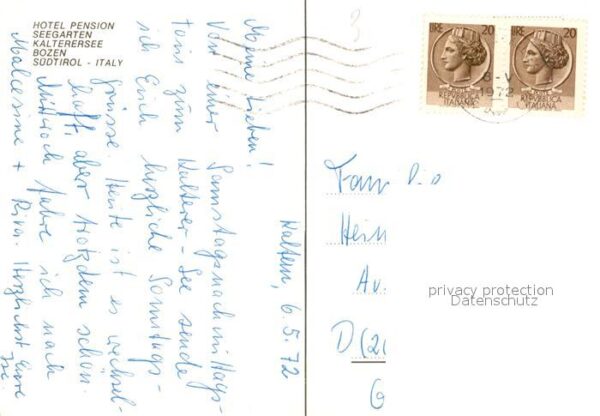 HOTEL PENSION
SEEGARTEN
KALTERERSEE
BOZEN
SÜDTIROL - ITALY
Kaltern, 6.5.72
Meine Lieben!
Von einer Samstagsnachmittags-
tour zum Kalterer-See sende
ich Euch herzliche Sonntags-
grüsse. Heute ist es wechsel-
haft, aber trotzdem schön.
Mittwoch fahre ich nach
Malcesine + Riva. Herzlichst Eure
3
LIRE 20
REPUBBLICA
ITALIANA
LIRE 20
REPUBBLICA
ITALIANA
8-V
1972
Fam
Hein
Av.
D (2
G
privacy protection
Datenschutz